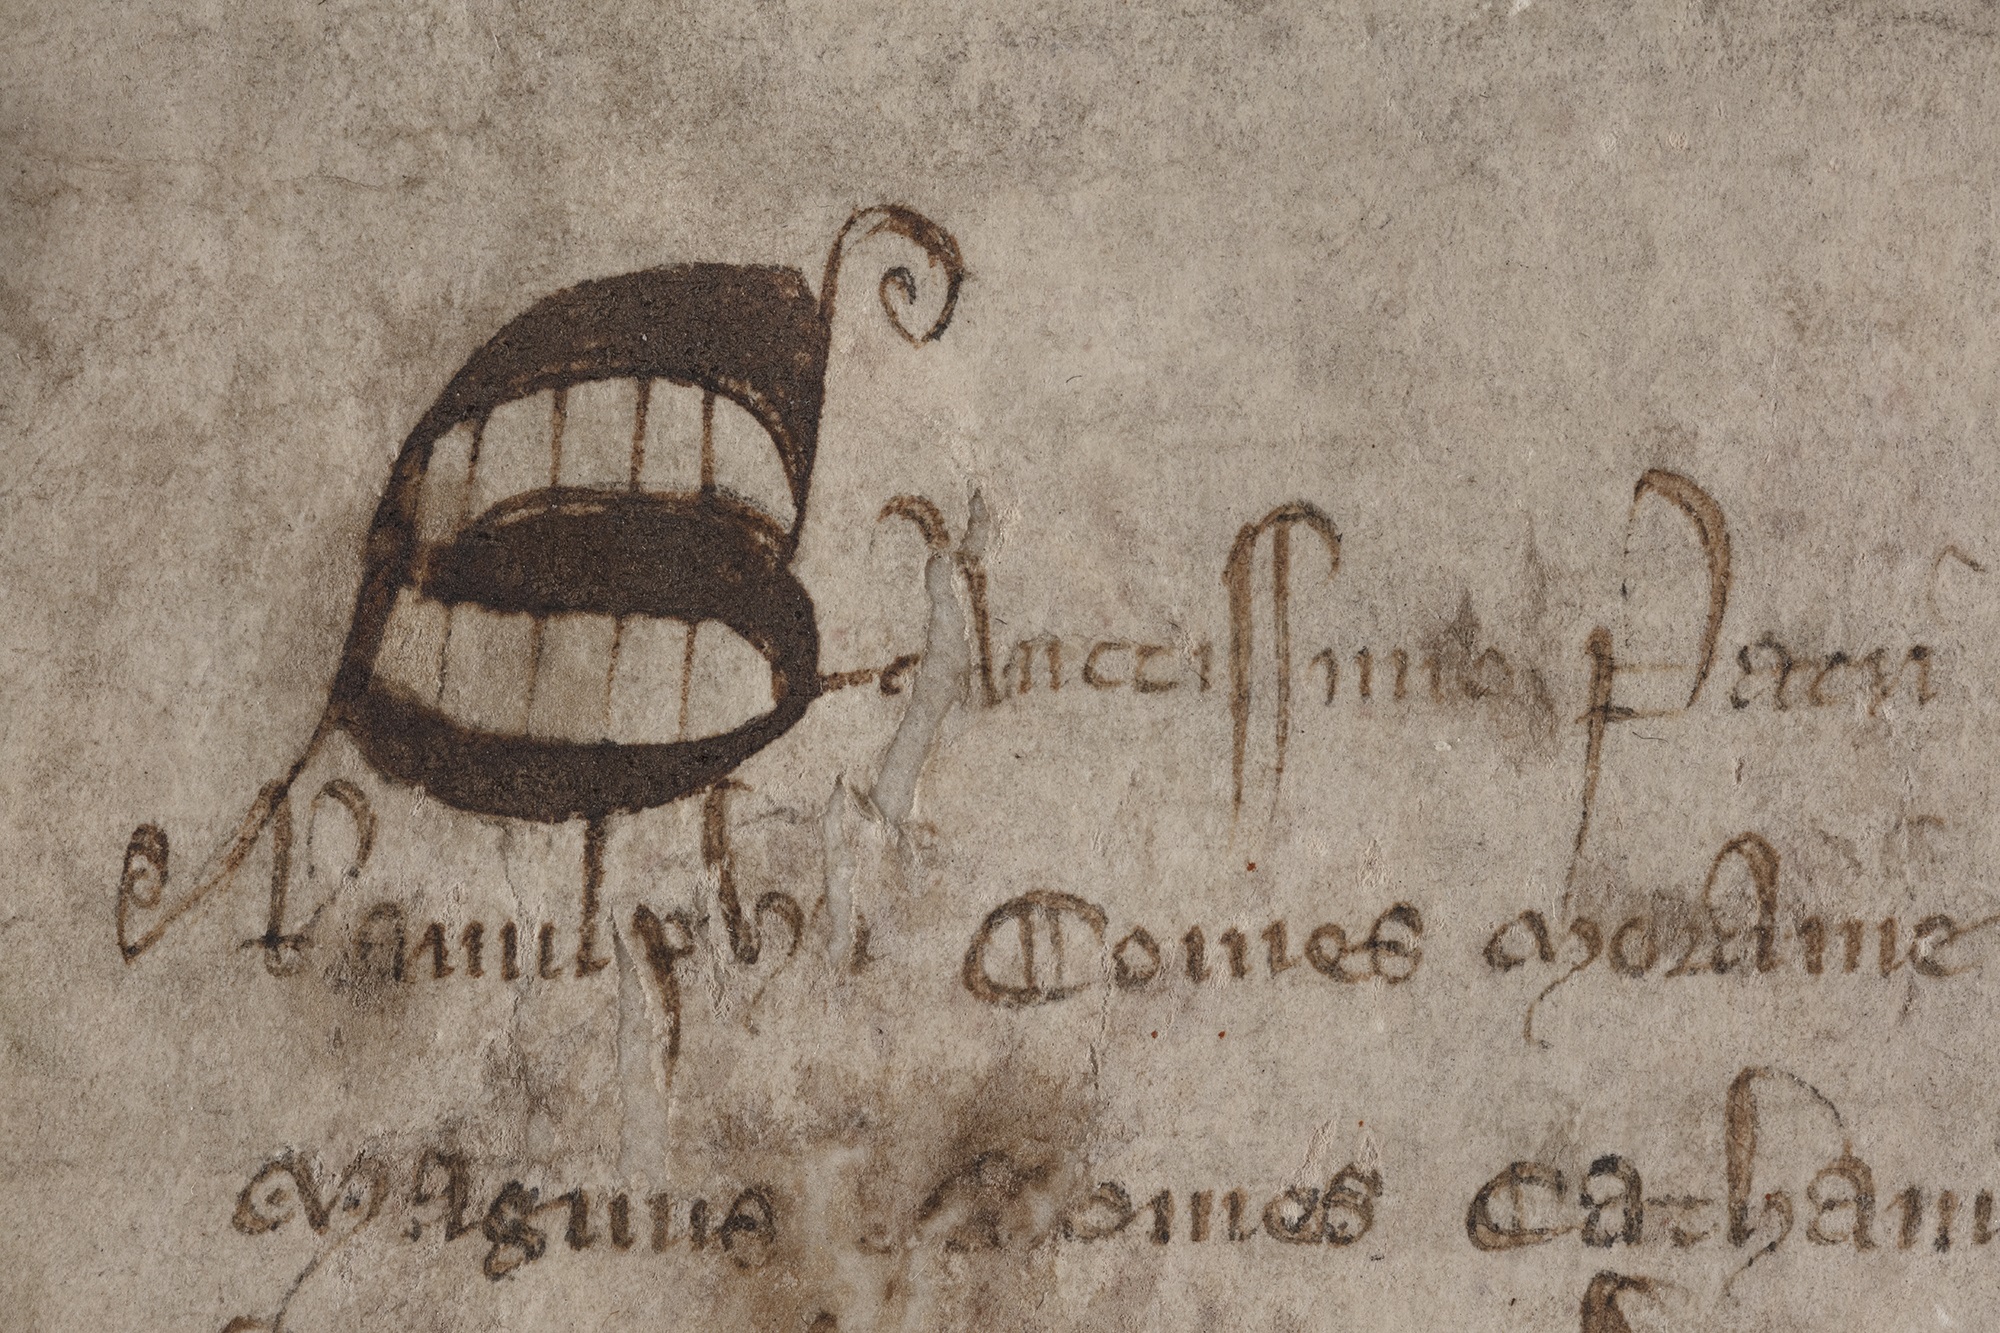 SAnctissimo Patri
Ranulphi Comes Morauie
Magnus Comes Cathanie